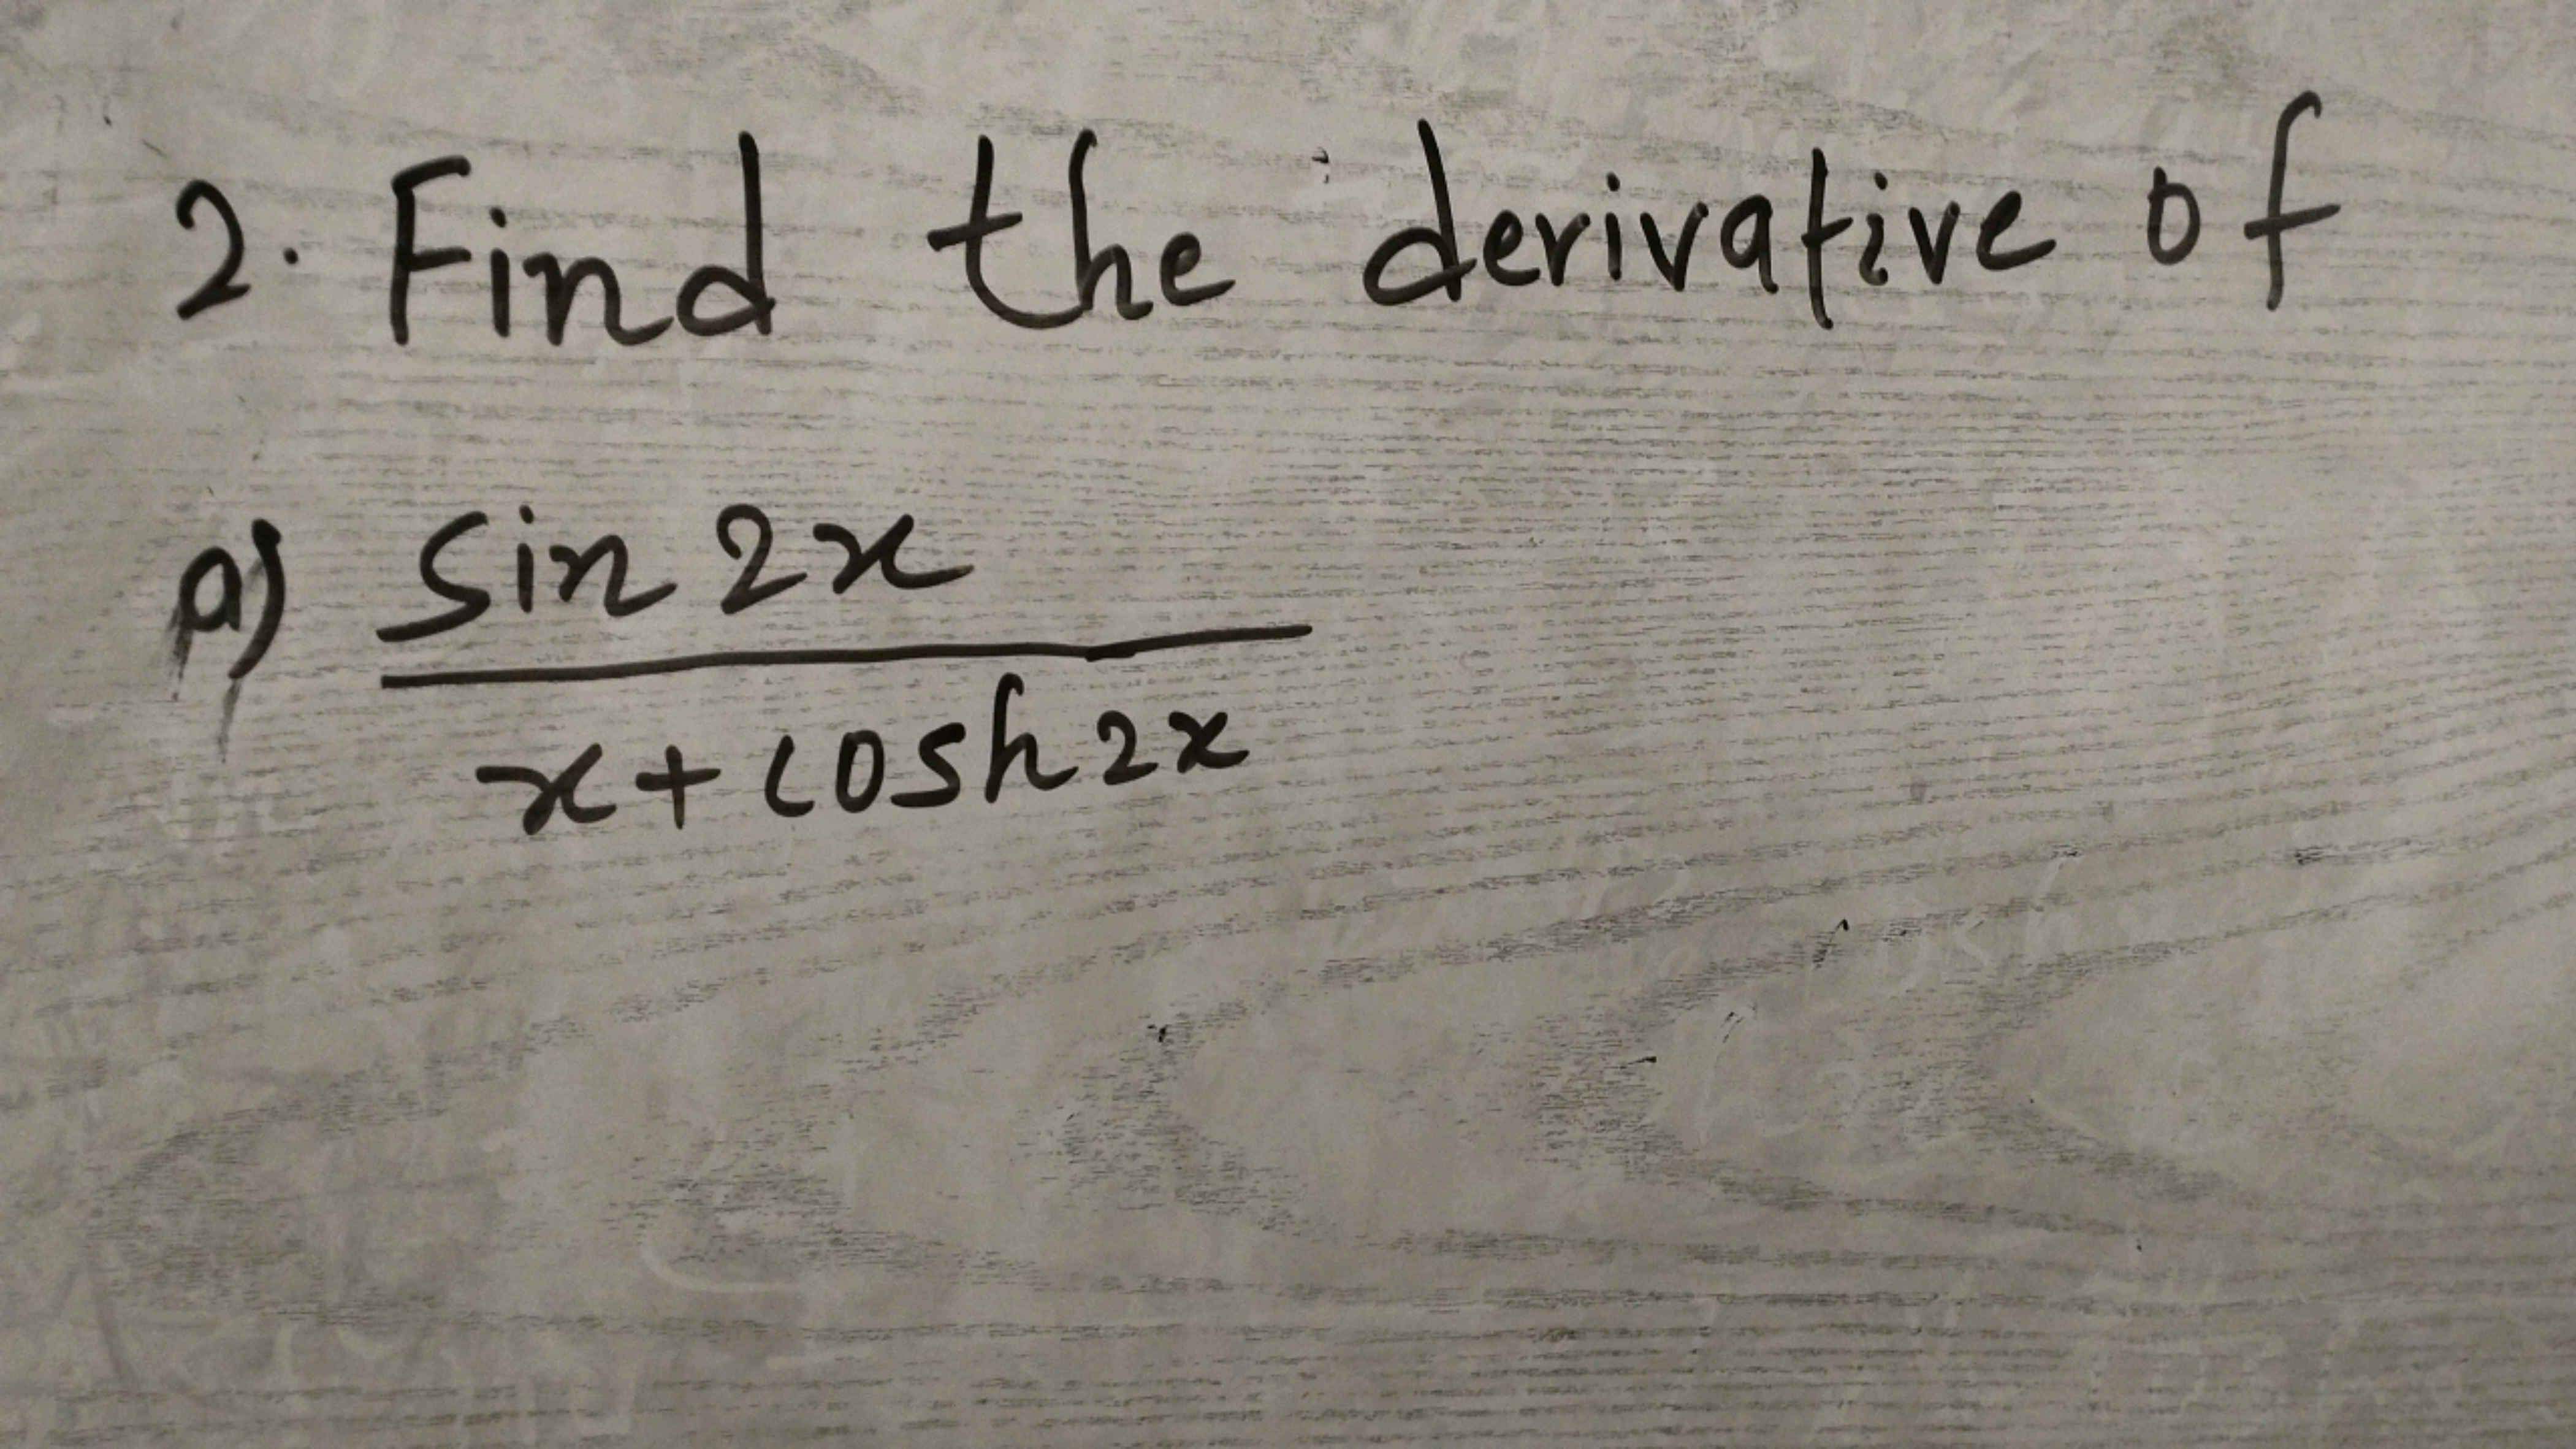 2. Find the derivative of
a) sin 2x
x + cosh 2x